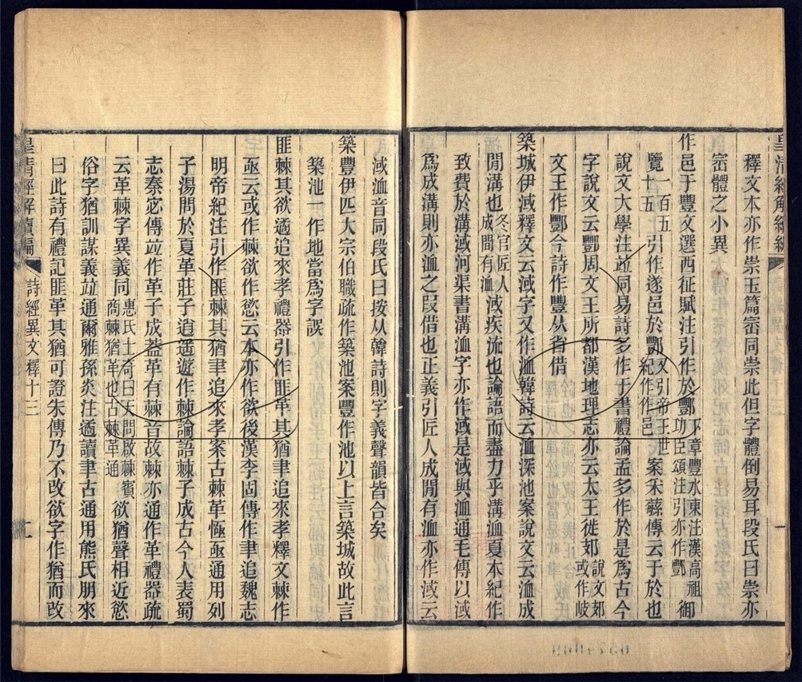 釋文本亦作崇玉篇崈同崇此但字體倒易耳段氏曰崇亦
崈體之小異
作邑于豐文選西征賦注引作於酆下章豐水東注漢高祖功臣頌注引亦作酆御
覽一百五十五引作遂邑於酆又引帝王世紀作作邑案采蘇傳云于於也
說文大學注竝同易詩多作于書禮論孟多作於是為古今
字說文云酆周文王所都漢地理志亦云太王徙𨙸說文𨙸或作岐
文王作酆今詩作豐从省借
築城伊淢釋文云淢字又作洫韓詩云洫深池案說文洫成
閒溝也冬官匠人成閒有洫淢疾流也論語而盡力乎溝洫夏本紀作
致費於溝淢河渠書溝洫字亦作淢是淢與洫通毛傳以淢
爲成溝則亦洫之叚借也正義引匠人成閒有洫亦作淢云
淢洫音同段氏曰按从韓詩則字義聲韻皆合矣
築豐伊匹大宗伯職疏作築池案豐作池以上言築城故此言
築池一作地當爲字誤
匪棘其欲遹追來孝禮器引作匪革其猶聿追來孝釋文棘作
亟云或作棘欲作慾云本亦作欲後漢李固傳作聿追魏志
明帝紀注引作匪棘其猶聿追來孝案古棘革恆亟通用列
子湯問於夏革莊子逍遙遊作棘論語棘子成古今人表蜀
志秦宓傳竝作革子成葢革有棘音故棘亦通作革禮器疏
云革棘字異義同惠氏士奇曰天問啟棘賓商棘猶革也古棘革通欲猶聲相近慾
俗字猶訓謀義竝通爾雅孫炎注遹讀聿古通用熊氏朋來
曰此詩有禮記匪革其猶可證朱傳乃不改欲字作猶而改
詩經異文釋十三